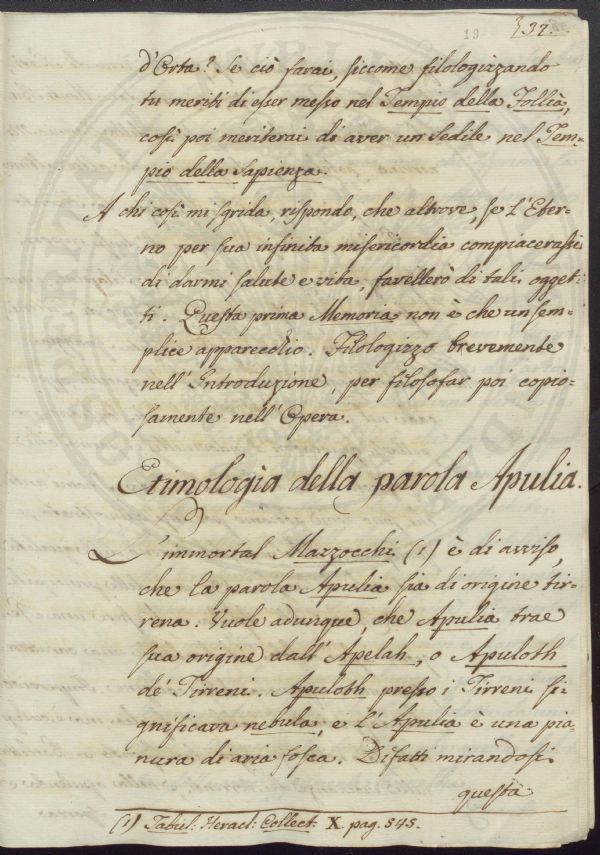 19 537.
d'Orta? Se ciò farai, siccome filologizzando
tu meriti di esser messo nel Tempio della Follìa,
così poi meriterai di aver un Sedile nel Tem=
pio della Sapienza.
A chi così mi sgrida, rispondo, che altrove, se l'Eter=
no per sua infinita misericordia compiacerassi
di darmi salute e vita, favellerò di tali ogget=
ti. Questa prima Memoria non è che un sem=
plice apparecchio. Filologizzo brevemente
nell'Introduzione, per filosofar poi copio=
samente nell'Opera.
Etimologìa della parola Apulia.
L'immortal Mazzocchi (1) è di avviso,
che la parola Apulia sia di origine tir=
rena. Vuole adunque, che Apulia trae
sua origine dall'Apelah, o Apuloth
de' Tirreni. Apuloth presso i Tirreni si=
gnificava nebula, e l'Apulia è una pia=
nura di aria fosca. Difatti mirandosi
questa
(1) Tabul: Heracl: Collect: X. pag. 545.